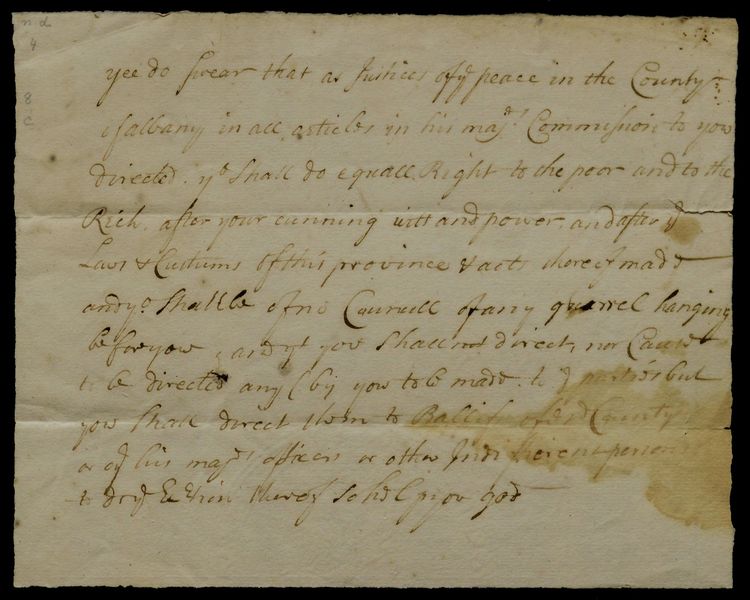 n.d
4
8
c
yee do swear that as Justices of yᵉ peace in the County
of albany in all articles in his majᵗˢ Commission to yow
directed. yᵉ Shall do equall Right to the poor and to the
Rich, after your cunning witt and power, and after yᵉ
Laws & Customs Of this province & acts thereof made
and yᵉ Shall be of no Councill of any quarrel hanging
before yow, and yᵗ yow Shall not direct, nor Cause
to be directed any (by yow to be made to yᵉ parties but
yow Shall direct them to Balifs of sᵈ County
or oyʳ his majᵗˢ officers or other Indifferent person
to do yᵉ thereof So help yow god